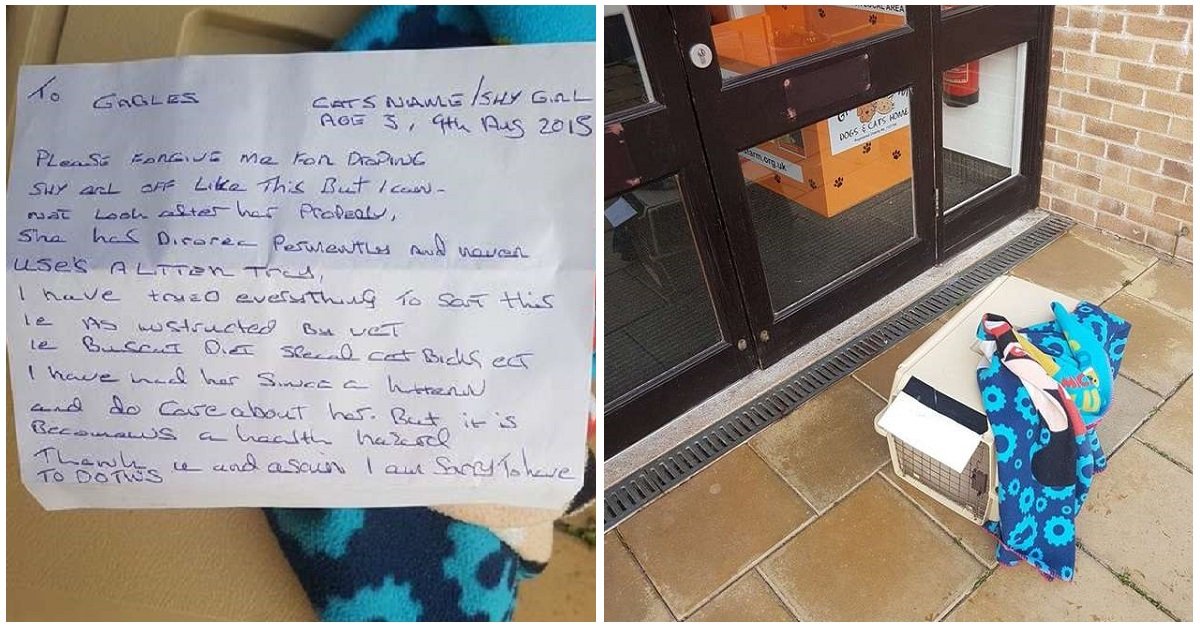 To GAGLES
CATS NAME / SHY GIRL
AGE 3, 9th Aug 2015
PLEASE FORGIVE Me FOR DROPING
SHY GRL OFF Like This But I can-
not Look after her Properly,
She has Diorea Permently and never
USE'S A LITTER TRAY,
I have tryed everything To sort this
ie AS instructed By VET
ie Buscut Diet Specal cat Bicks ect
I have had her Since a kitten
and do Care about her. But it is
Becomeing a health hazard
Thank u and again I am Sorry To have
TO DO THIS
LOCAL AREA
DOGS & CATS HOME
farm.org.uk